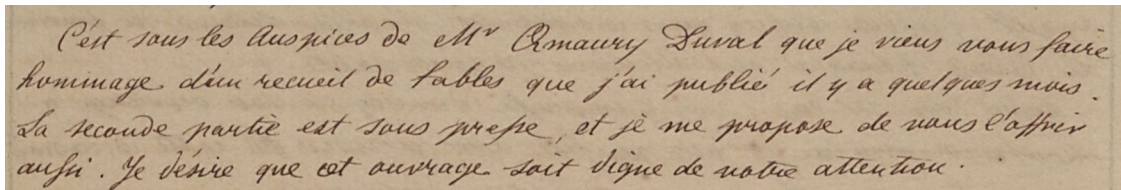 C'est sous les auspices de Mr Amaury Duval que je viens vous faire
hommage d'un recueil de fables que j'ai publié il y a quelques mois.
La seconde partie est sous presse, et je me propose de vous l'offrir
aussi. Je désire que cet ouvrage soit digne de votre attention.